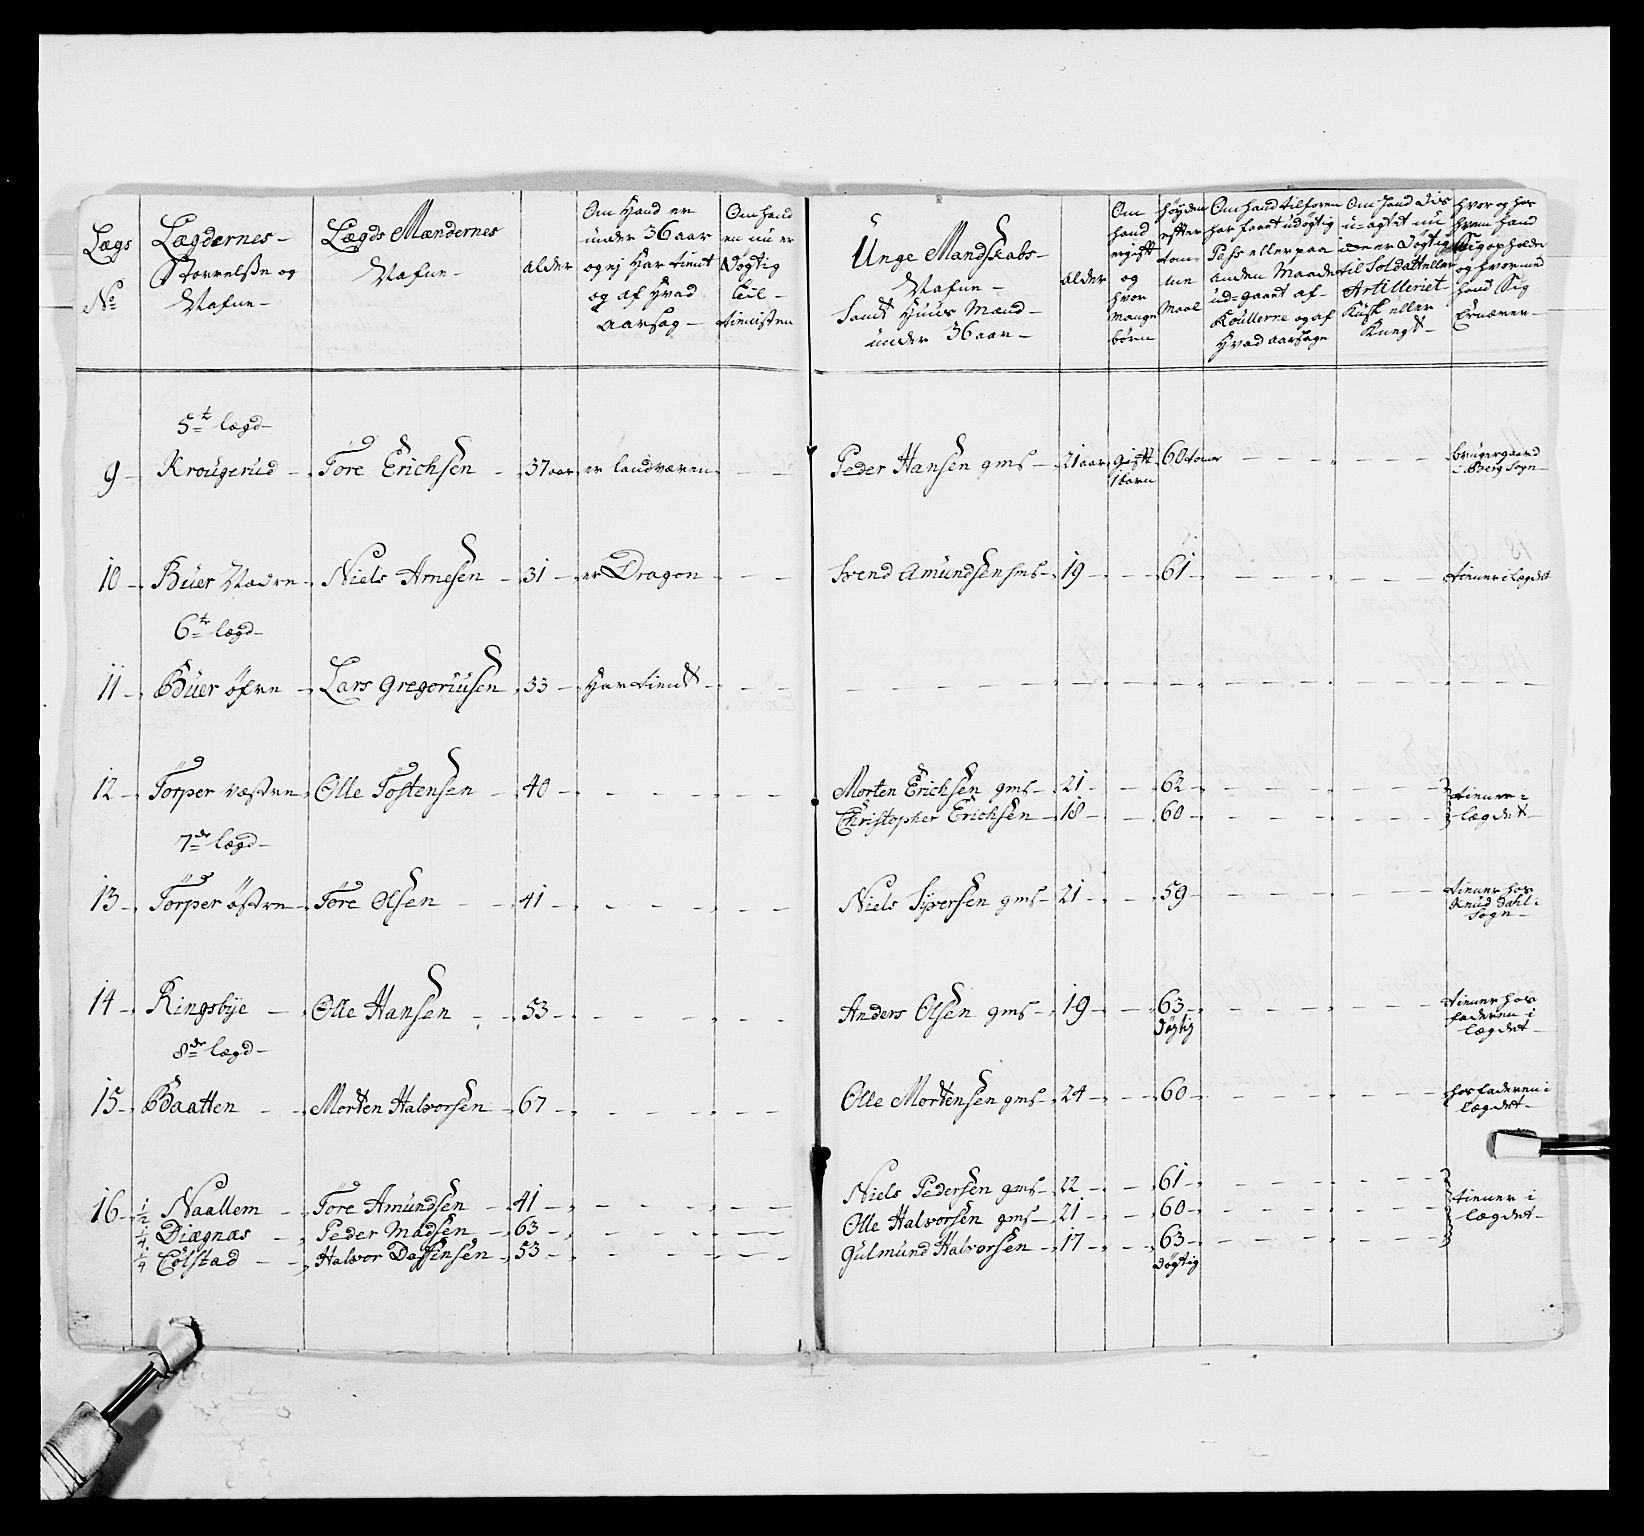 Lægs
No
Lægdernes-
Størrelsse og
Nafne-
Lægds Mændernes
Nafne-
alder
Om Hand er
under 36 aar
og ej Har tient
og af Hvad
Aarsag-
Om hand
en nu er
Døgtig
til-
tienisten
Unge Mandskabs-
Nafne-
Samt Huus Mænd-
under 36 aar-
alder
Om
hand
er gift
og
hvor
mange
børn
høyden
efter
tom-
me
Maal
Om hand tilforn
har faaet udøgtig
Pass eller paa
anden Maade
ud-gaaet af-
Roullerne og af
Hvad aarsage
Om Hand dis
u-agtet nu
er Døgtig
til Soldatt eller
Artilleriet
Kusk eller
Knegt-
hvor og hos
hvem hand
Sig opholder
og hvormed
hand Sig
Ernærer-
5te lægd-
9- Krougerud- Tore Erichsen- 37 aar er landværen - - Peder Hansen gms- 21 aar gift 60 tomer - - - brugergaard
1 barn i Berg Sogn-
10- Büer Nædre- Niels Arnesen- 31- er Dragon - - Svend Amundsen sms- 19- - 61- - - - tiener i Lægdet
6te lægd-
11- Büer øfre- Lars Gregoriusen 33- Har tient- - -
12- Torper væstre Olle Tostensen- 40- - - - Morten Erichsen gms- 21- - 62- - - - tiener i
Christopher Erichsen- 18- - 60- - - - lægdet-
7de lægd-
13- Torper østre- Tore Olsen- 41- - - - Niels Syversen gms- 21- - 59- - - - tiener hos
Knud Dahl i
Sogn-
14- Ringsbye- Olle Hansen- 53- - - - Anders Olsen gms- 19- - 63- - - - tiener hos
døgtig faderen i
lægdet-
8de lægd-
15- Baatten- Morten Halvorsen 67- - - - Olle Mortensen gms- 24- - 60- - - - hos faderen i
lægdet-
16- 1/2 Naallem- Tore Amundsen- 41- - - - Niels Pedersen gms- 22- - 61- - - - tiener i
1/4 Diægnæs- Peder Madsen- 63- - - - Olle Halvorsen gms- 21- - 60- - - - lægdet-
1/4 Colstad- Halvor Dassensen- 53- - - - Gulmund Halvorsen- 17- - 63- - - -
døgtig